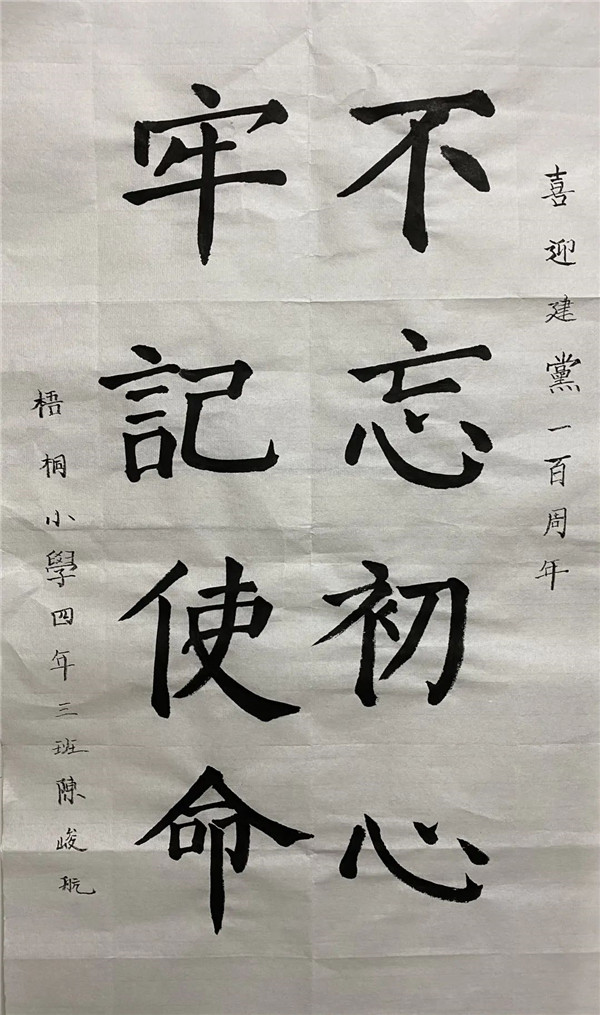 喜迎建黨一百周年
不忘初心
牢記使命
梧桐小學四年三班陳峻航